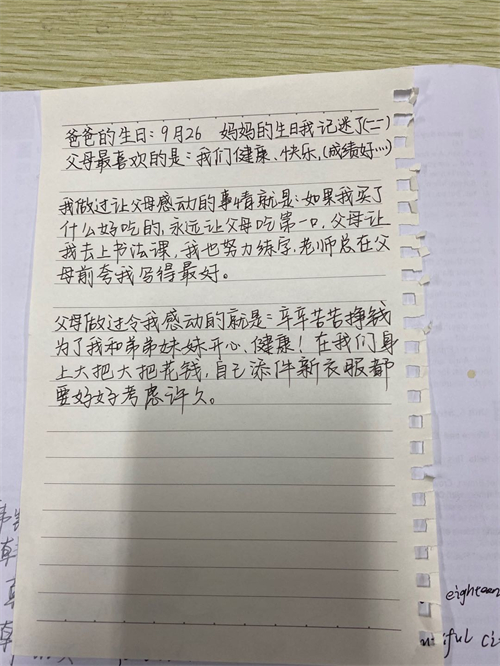 爸爸的生日:9月26 妈妈的生日我记迷了(二二)
父母最喜欢的是:我们健康、快乐,(成绩好…)
我做过让父母感动的事情就是:如果我买了
什么好吃的,永远让父母吃第一口,父母让
我去上书法课,我也努力练字,老师总在父
母前夸我写得最好。
父母做过令我感动的就是:辛辛苦苦挣钱
为了我和弟弟妹妹开心、健康!在我们身
上大把大把花钱,自己添件新衣服都
要好好考虑许久。
eighteen
iful ci